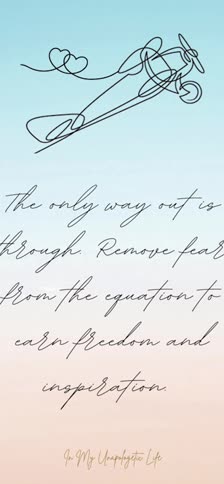 The only way out is
through. Remove fear
from the equation to
earn freedom and
inspiration.
In My Unapologetic Life